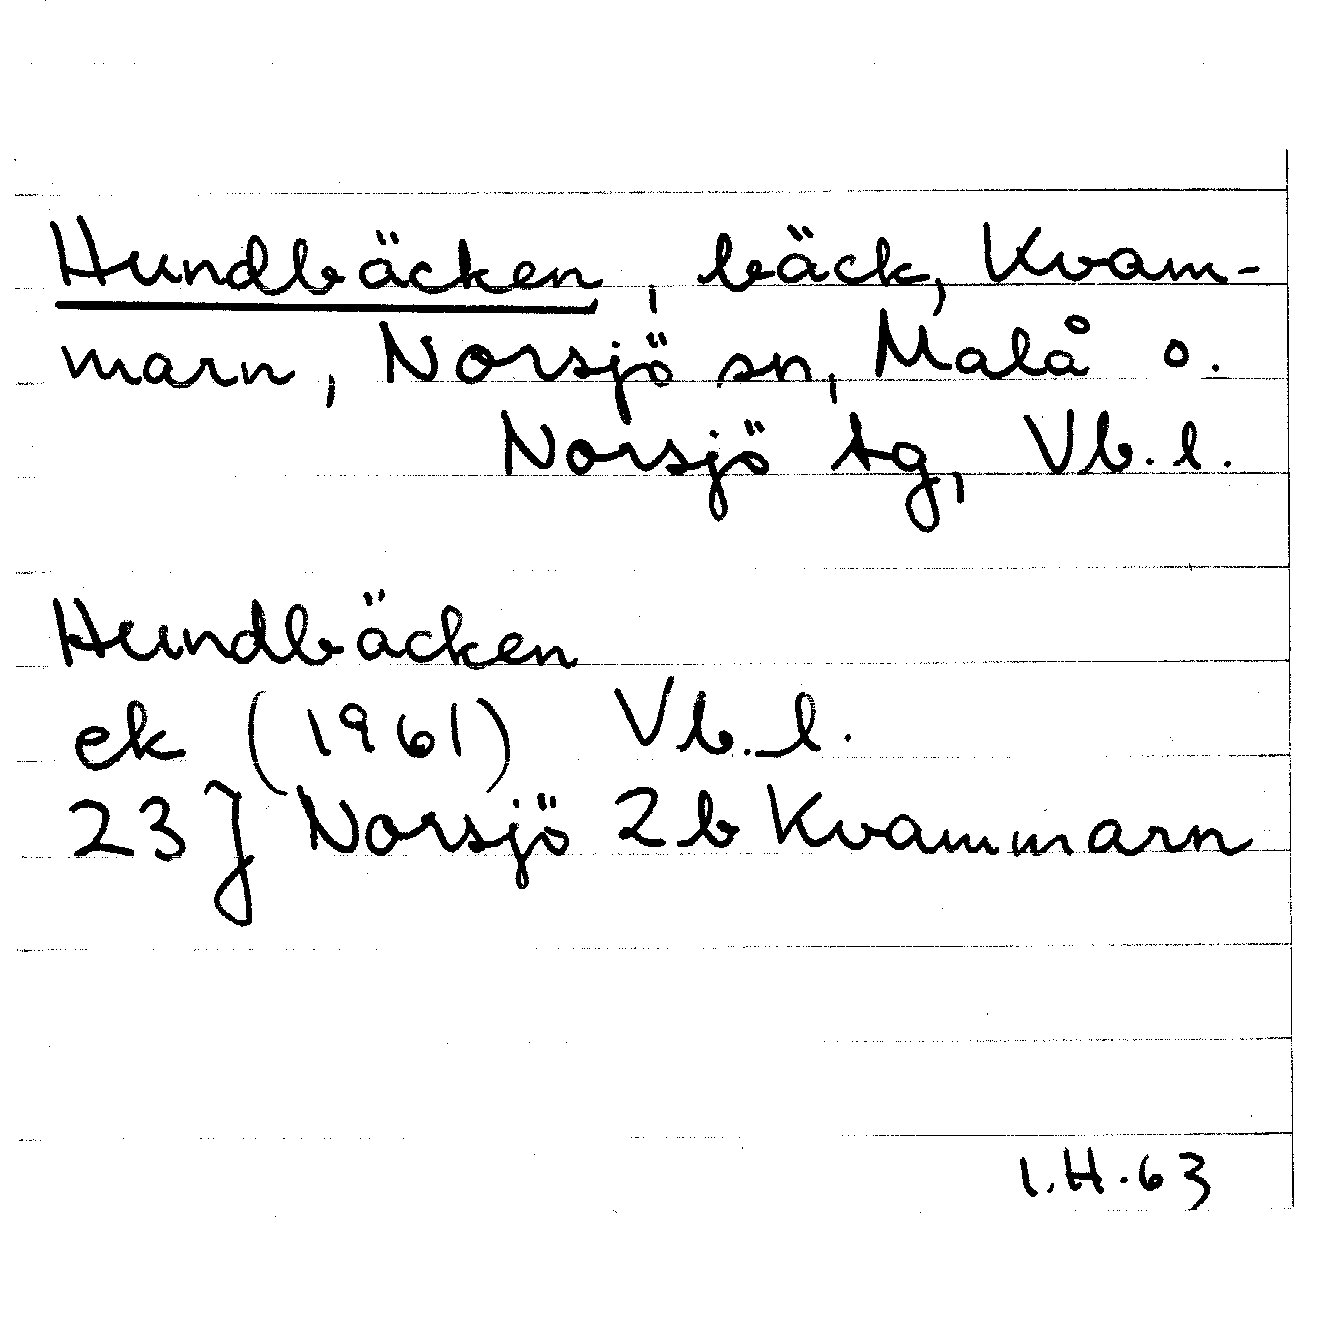 Hundbäcken, bäck, Kvam-
marn, Norsjö sn, Malå o.
Norsjö tg, Vb. l.
Hundbäcken
ek (1961) Vb. l.
23 J Norsjö 2b Kvammarn
I.H. 63